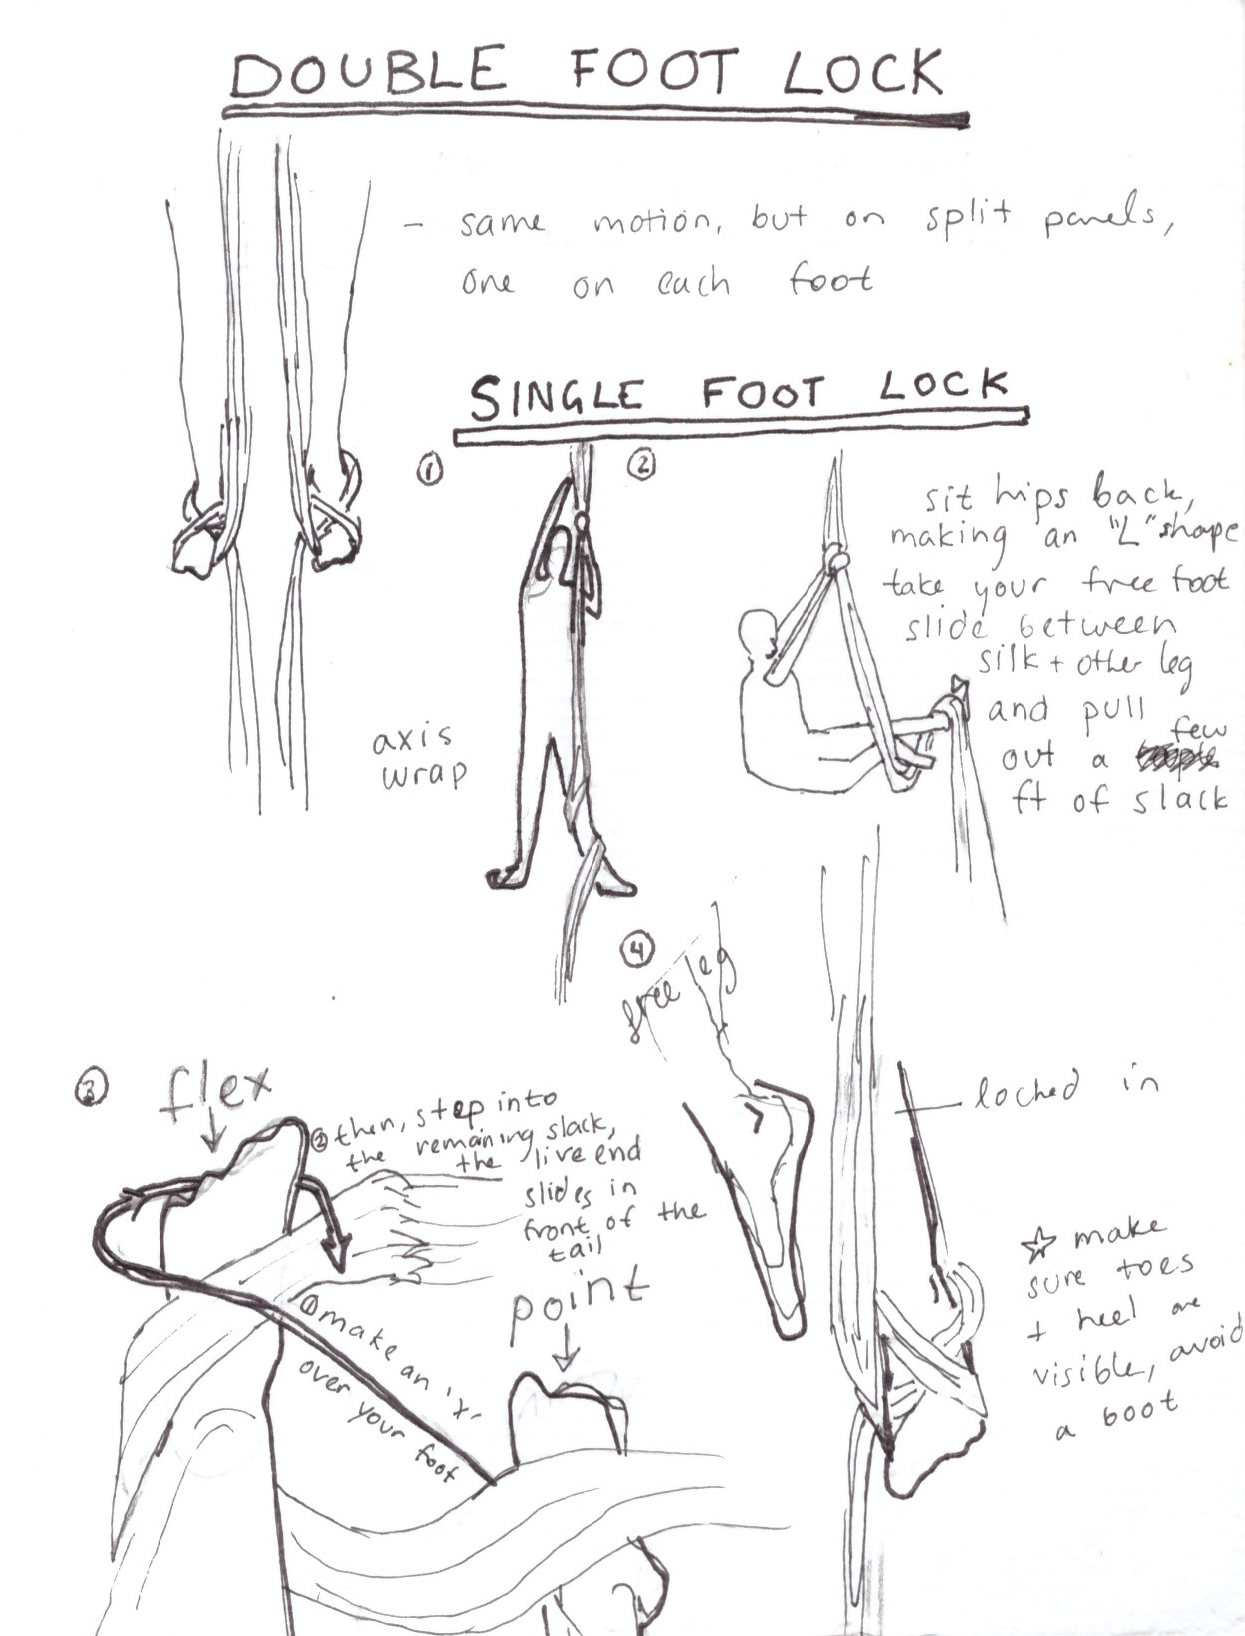 DOUBLE FOOT LOCK
- same motion, but on split panels,
one on each foot
SINGLE FOOT LOCK
①
axis
wrap
②
sit hips back,
making an "L" shape
take your free foot
slide between
silk + other leg
and pull
out a few
ft of slack
③
flex
② then, step into
the remaining slack,
the live end
slides in
front of the
tail
point
① make an 'x'
over your foot
④
free leg
locked in
☆ make
sure toes
+ heel are
visible, avoid
a boot